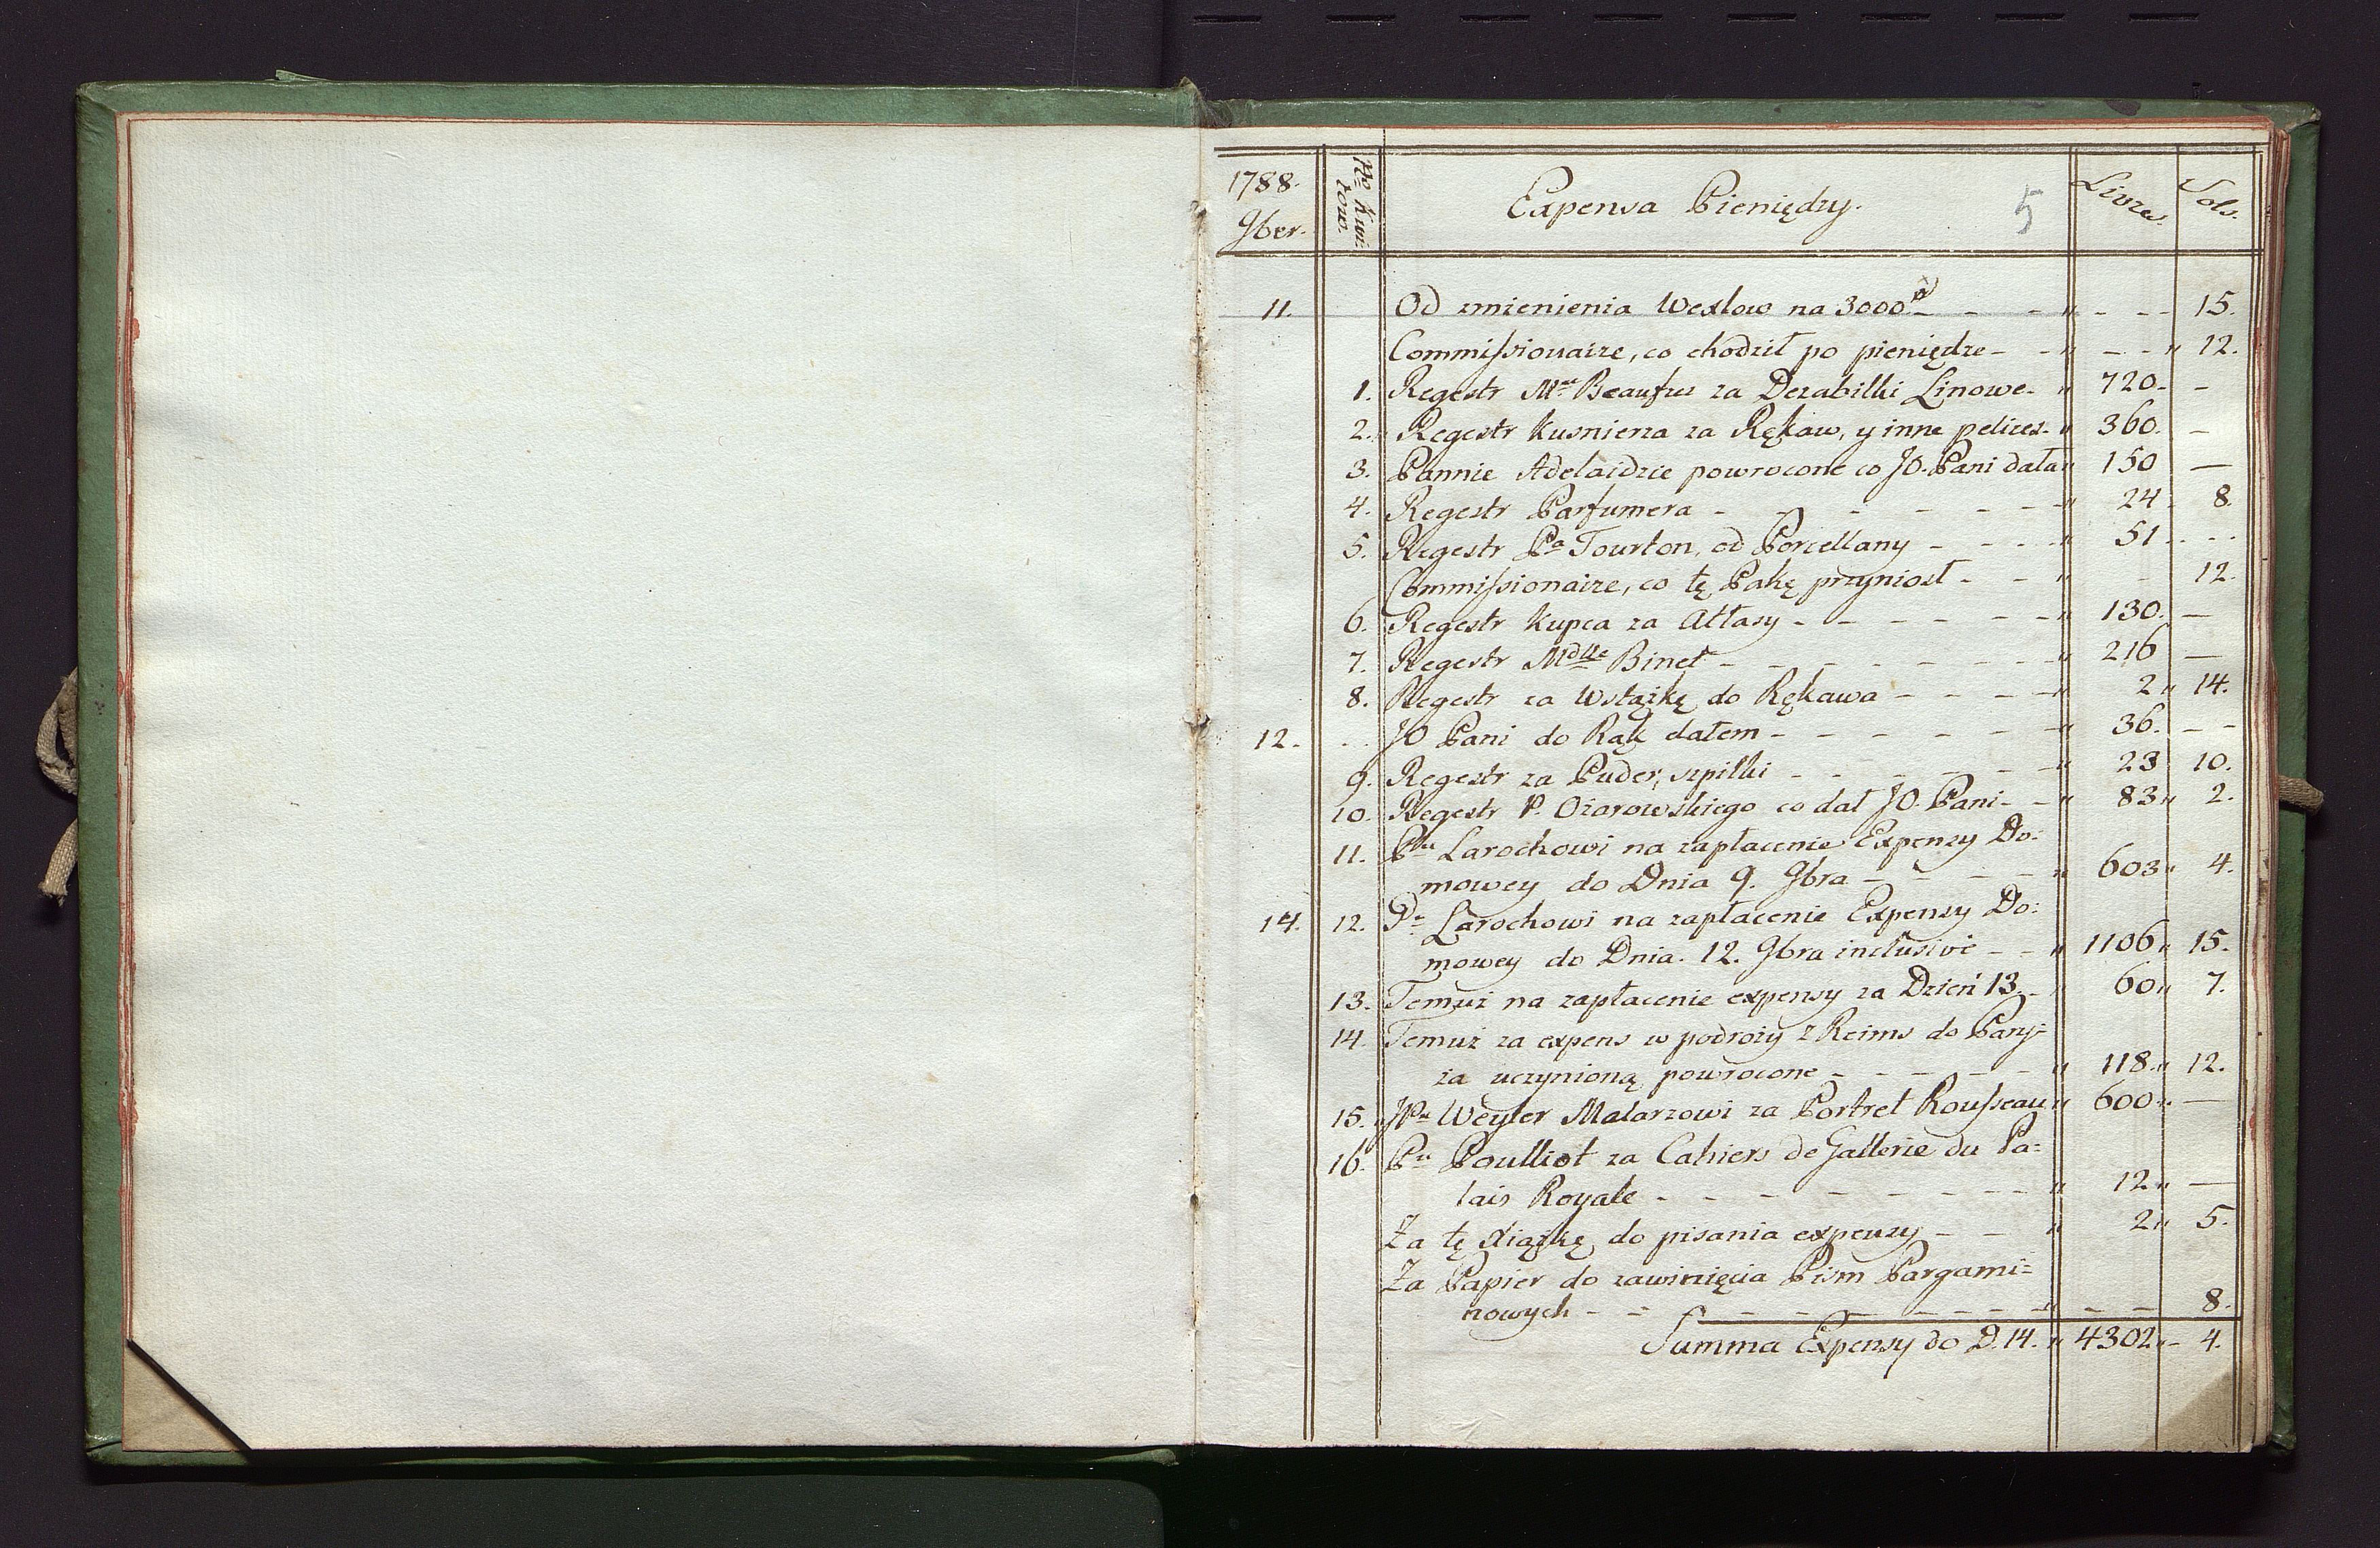 1788. 9ber. No Kwi: tow. Expensa Pieniędzy. 5 Livres. Sols.
11. Od zmienienia Wexlow na 3000 - - - " - - - 15.
Commissionaire, co chodził po pieniędze - - " - - " 12.
1. Regestr Mr Beaufus za Dezabilki Linowe - " 720. -
2. Regestr Kusnierza za Rękaw, y inne pelices - " 360. -
3. Pannie Adelaidzie powrocone co JO. Pani dała " 150 —
4. Regestr Parfumera - - - - - - - " 24. 8.
5. Regestr Pa Tourton, od Porcellany - - - - " 51. - - -
Commissionaire, co tę Pakę przyniosł - - " - 12.
6. Regestr Kupca za Atłasy - - - - - - " 130. —
7. Regestr Mdlle Binet - - - - - - - " 216 —
8. Regestr za Wstążkę do Rękawa - - - - " 2 " 14.
12. - - JO Pani do Rąk dałem - - - - - - " 36. - -
9. Regestr za Puder, szpilki - - - - - " 23 10.
10. Regestr P. Ożarowskiego co dał JO. Pani - - " 83 " 2.
11. Pnu Larochowi na zapłacenie Expensy Do:
mowey do Dnia 9. 9bra - - - - - " 603 " 4.
14. 12. Pu Larochowi na zapłacenie Expensy Do:
mowey do Dnia. 12. 9bra inclusive - - " 1106 " 15.
13. Temuż na zapłacenie expensy za Dzień 13. - " 60 " 7.
14. Temuż za expens w podroży z Reims do Pary=
ża uczynioną powrocone - - - - - - " 118. " 12.
15. JPu Weyler Malarzowi za Portret Rousseau " 600 " —
16. Pu Poulliot za Cahiers de Gallerie du Pa:
lais Royale - - - - - - - - - " 12 " —
Za tę xiążkę do pisania expensy - - - " 2 " 5.
Za Papier do zawinięcia Pism Pargami=
nowych - - - - - - - - - " - - 8.
Summa Expensy do D. 14. " 4302 " - 4.